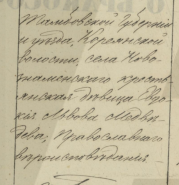 Тамбовской губернiи
и уѣзда, Коремской
волости, села Ново-
знаменскаго кресть-
янская дѣвица Евдо-
кiя Львова Медвѣ-
дева, Православнаго
вѣроисповѣданiя